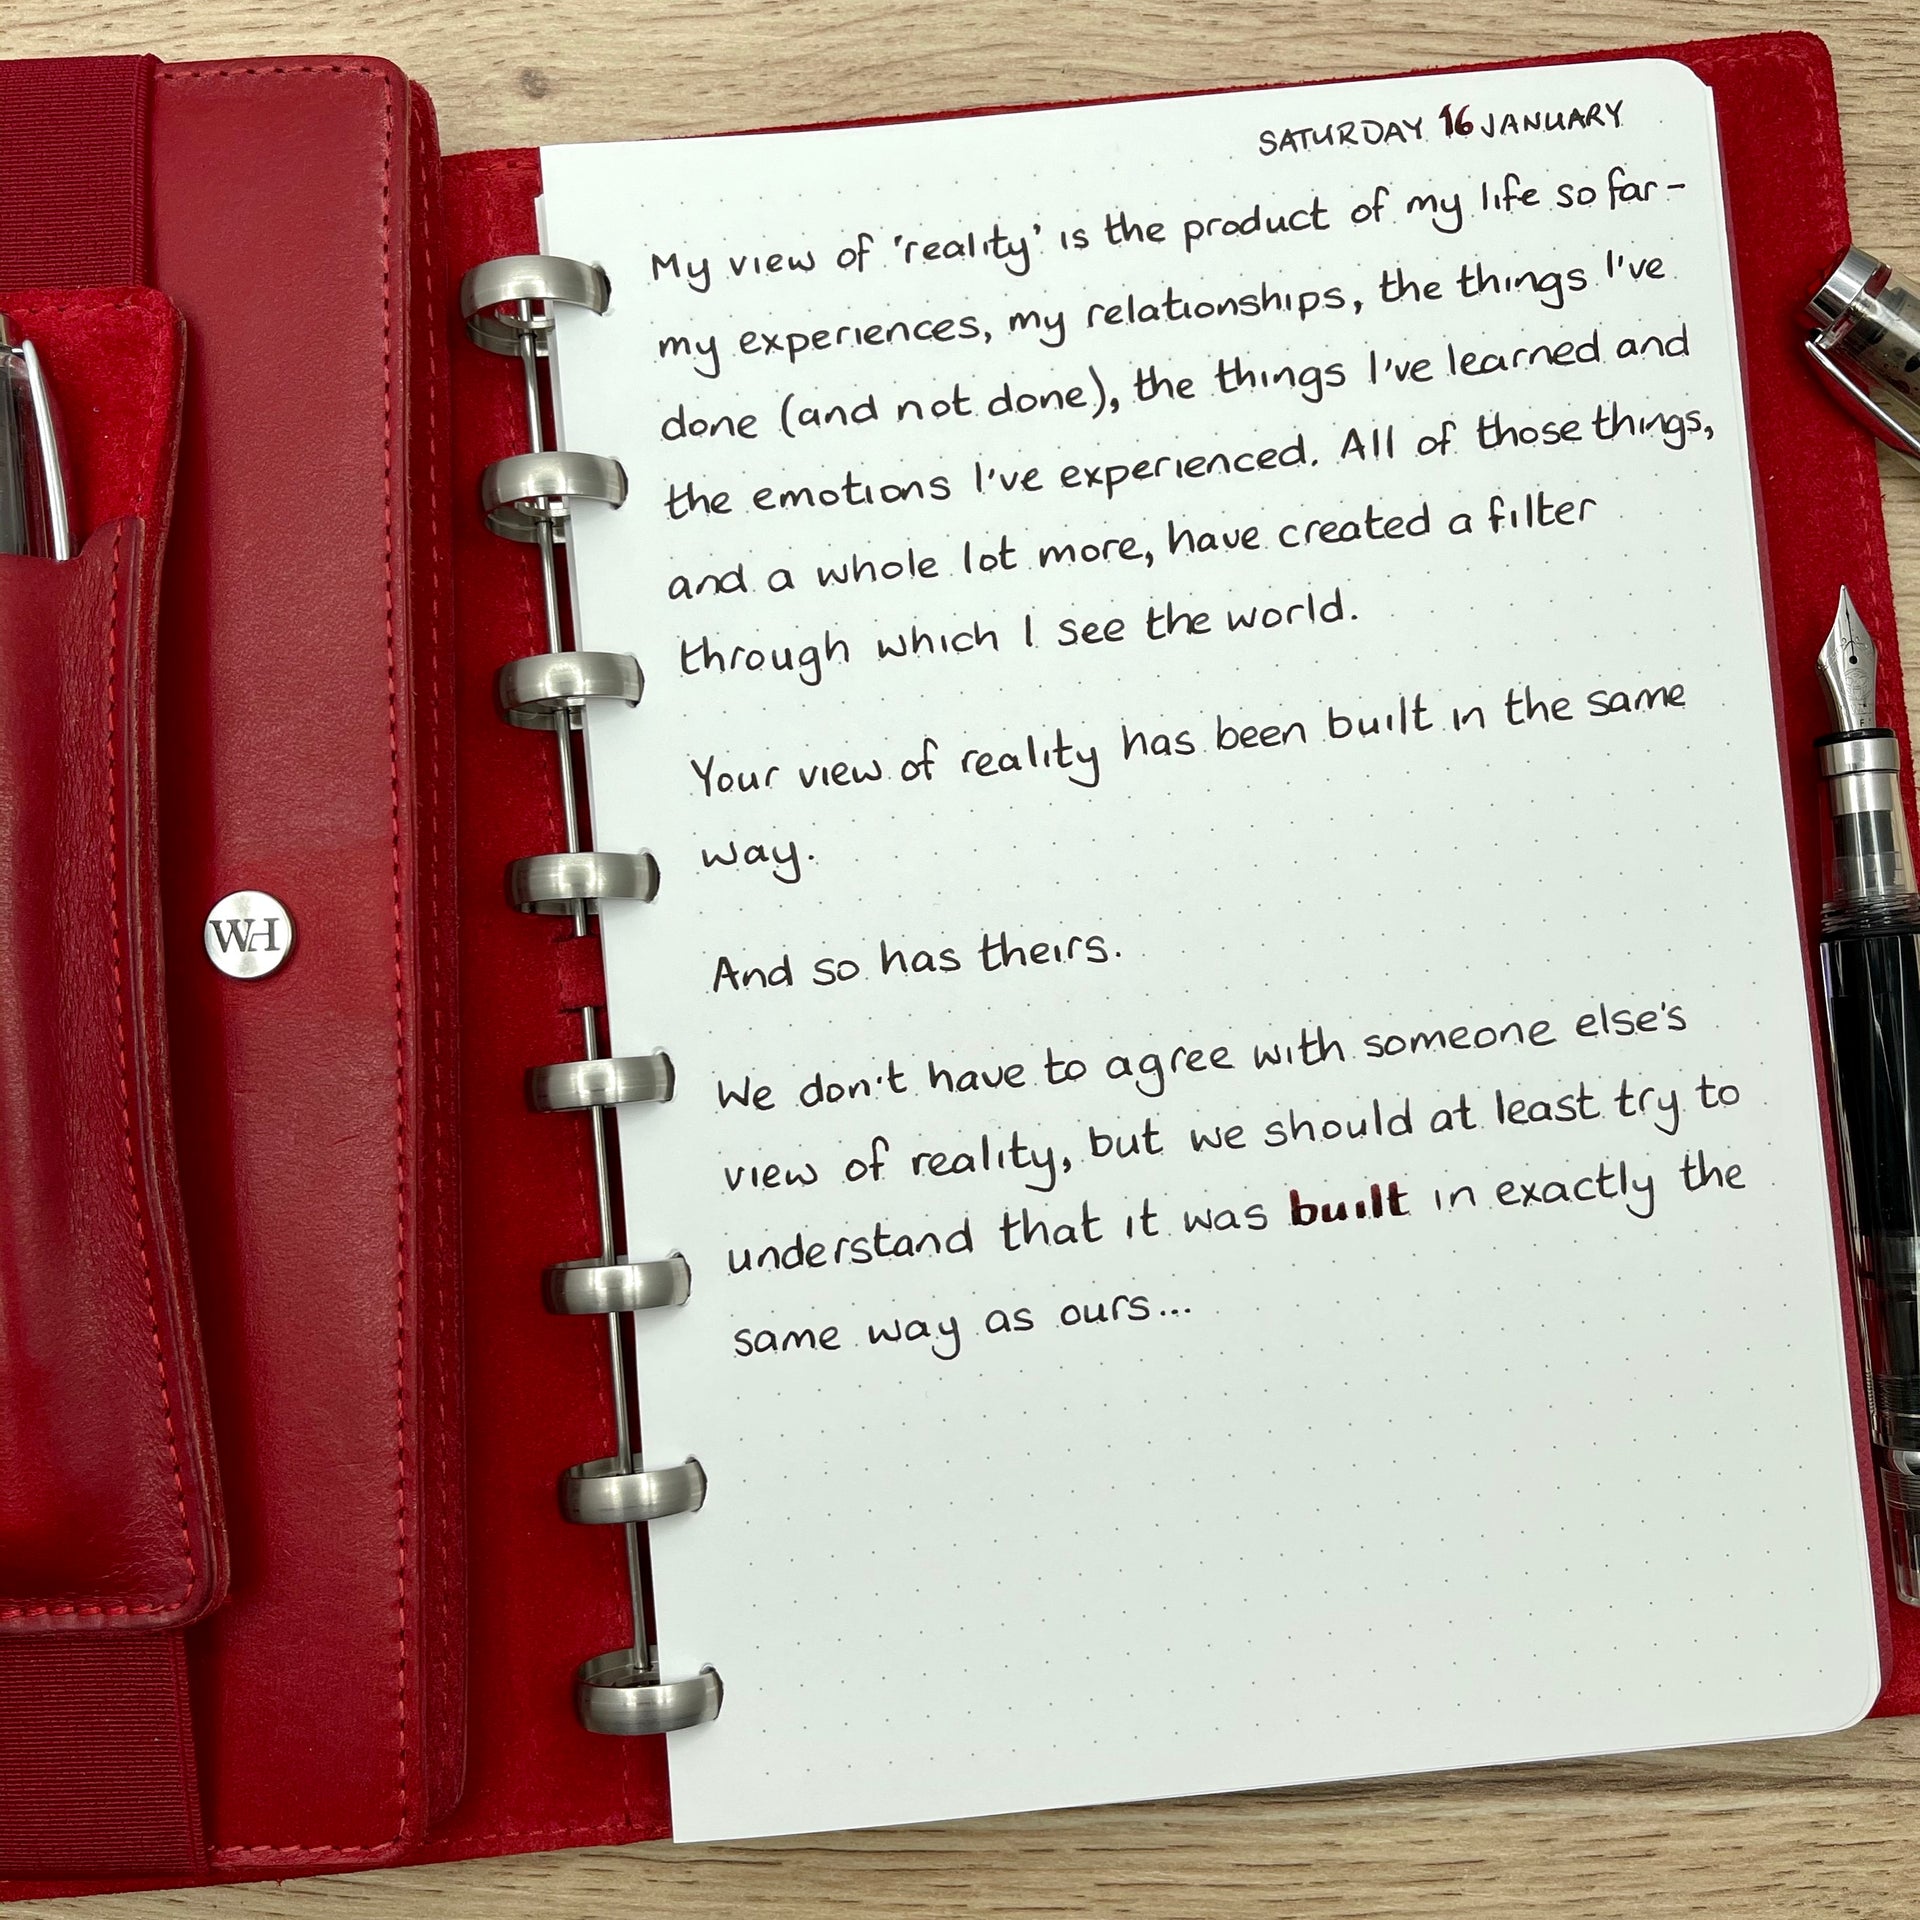 SATURDAY 16 JANUARY
My view of 'reality' is the product of my life so far -
my experiences, my relationships, the things I've
done (and not done), the things I've learned and
the emotions I've experienced. All of those things,
and a whole lot more, have created a filter
through which I see the world.
Your view of reality has been built in the same
way.
And so has theirs.
We don't have to agree with someone else's
view of reality, but we should at least try to
understand that it was built in exactly the
same way as ours...
WH
F